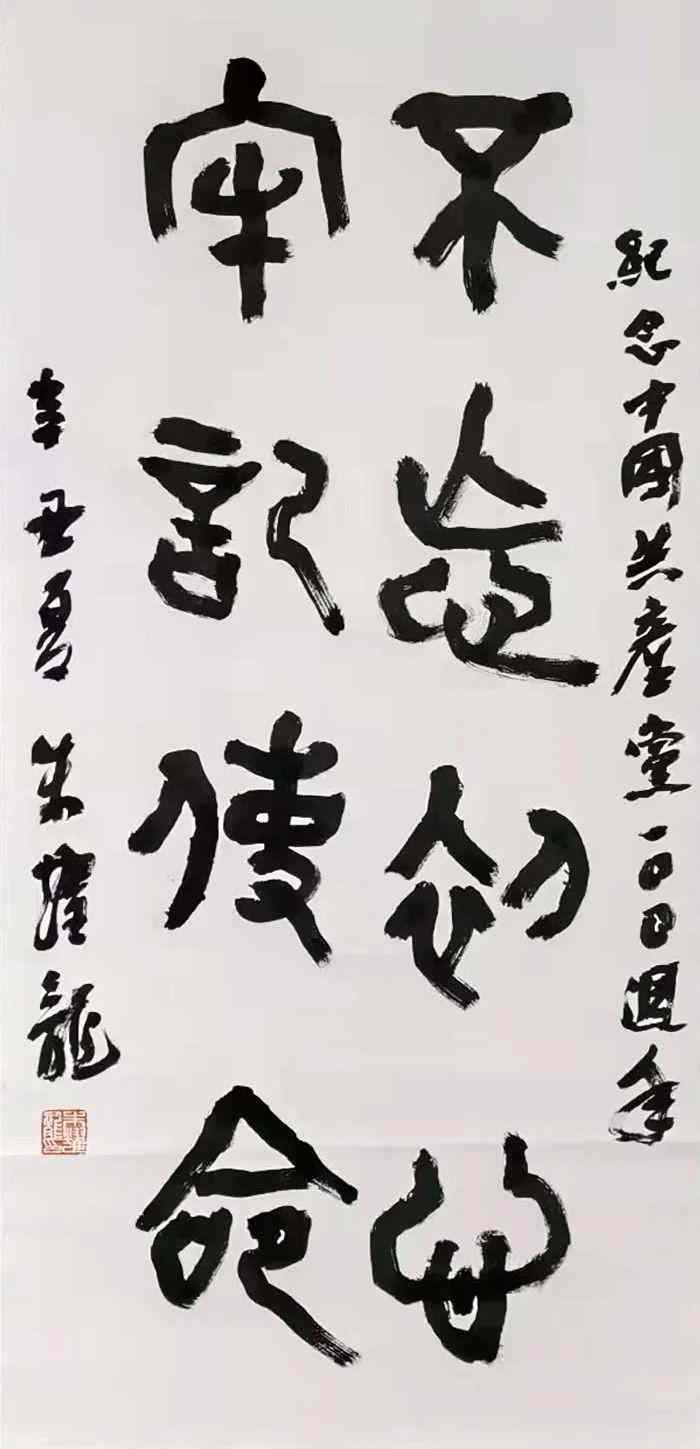 紀念中國共產黨一〇〇週年
不忘初心
牢記使命
辛丑夏 朱龍